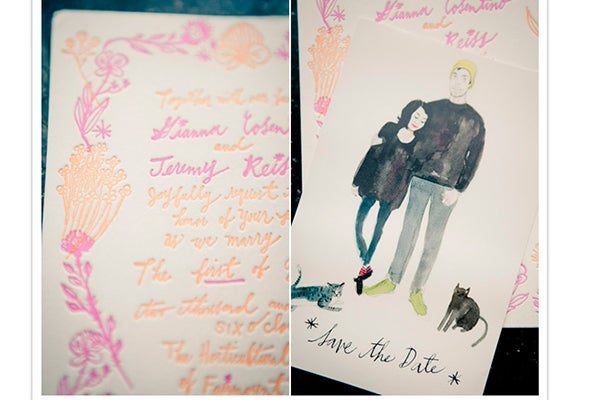 Together with our
Gianna Cosen
and
Jeremy Reis
Joyfully request
honor of your
as we marry
The first of
two thousand and
six o'clo
The Horticultural
of Fairmount
Gianna Cosentino
and
Reiss
*Save the Date*